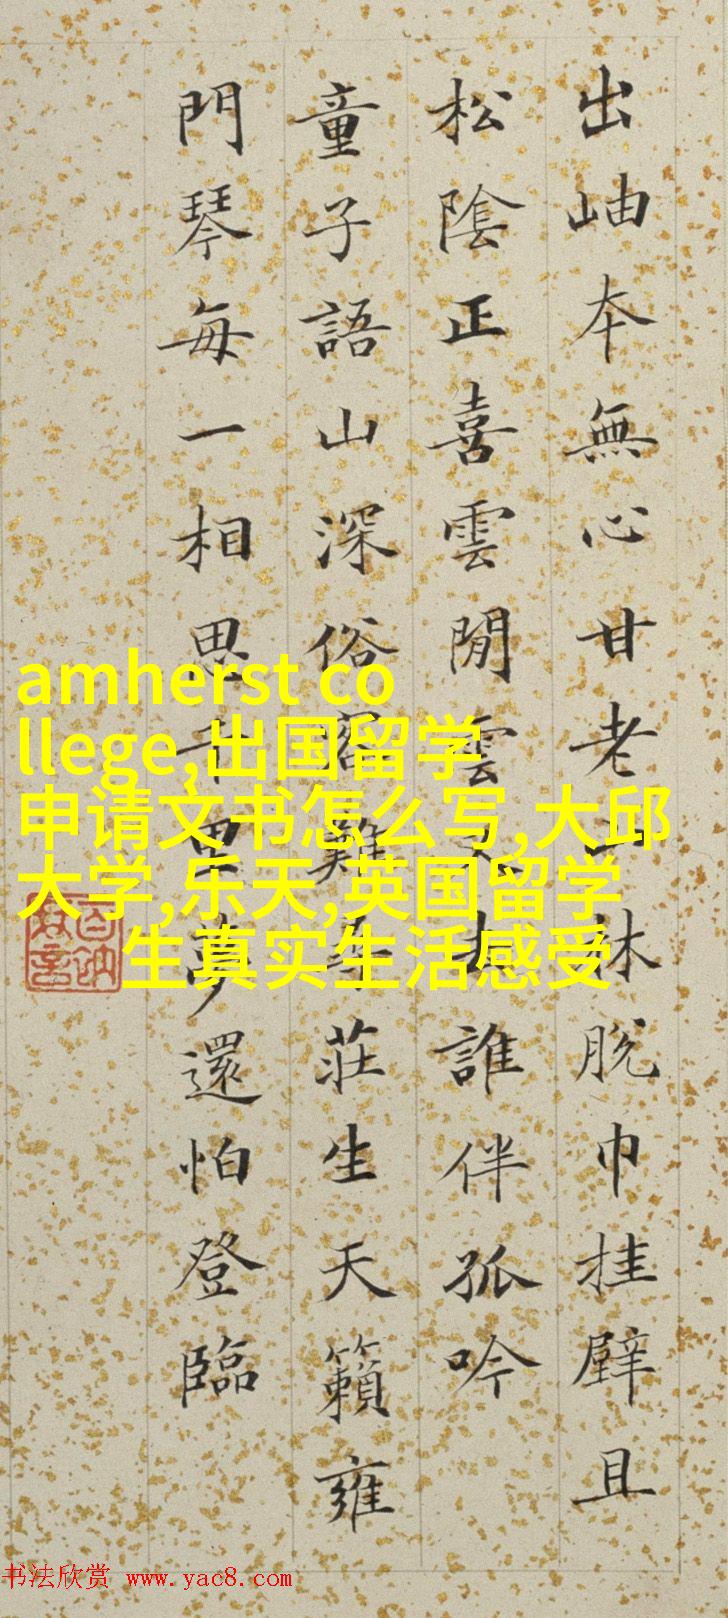 出岫本無心甘老林脫巾挂壁且
松陰正喜雲閒雲又去誰伴孤吟
童子語山深俗客難尋莊生天籟雍
門琴每一相思千里夢還怕登臨
amherst co
llege,出国留学
申请文书怎么写,大邱
大学,乐天,英国留学
生真实生活感受
书法欣赏 www.yac8.com